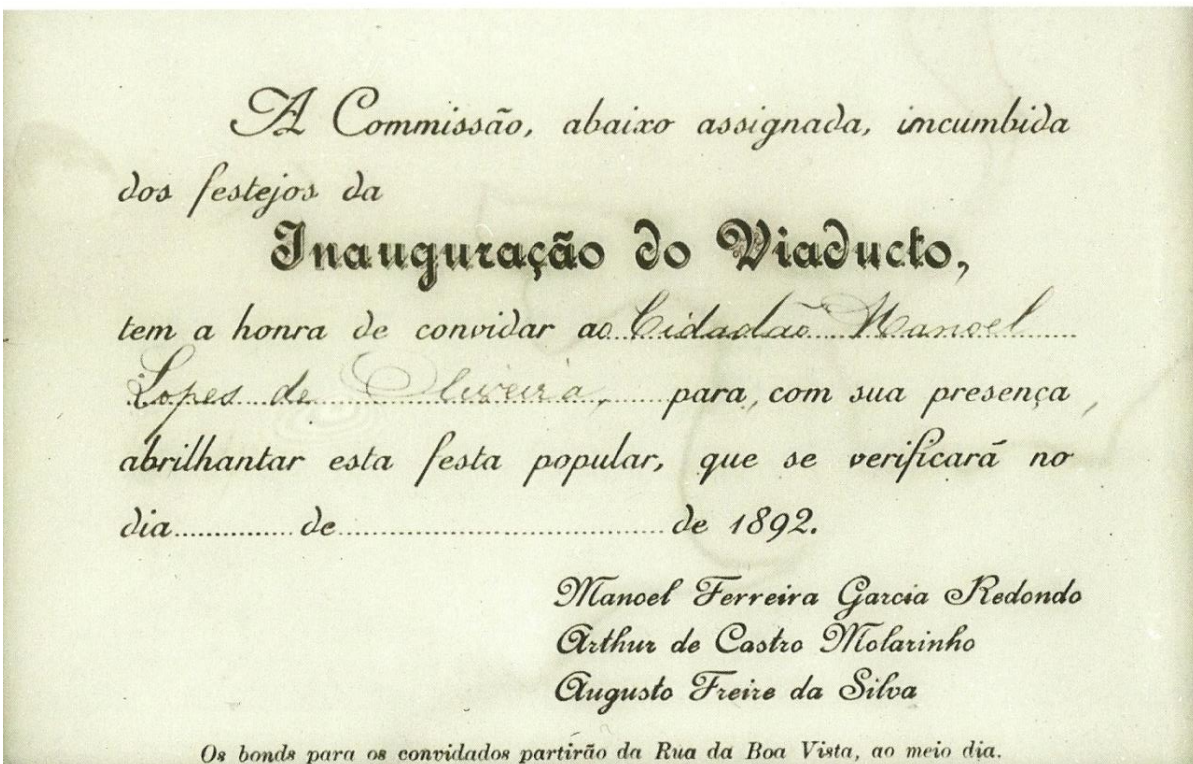 A Commissão, abaixo assignada, imcumbida
dos festejos da
Inauguração do Viaducto,
tem a honra de convidar ao Cidadão Manoel
Lopes de Oliveira, para, com sua presença,
abrilhantar esta festa popular, que se verificará no
dia............. de.................................... de 1892.
Manoel Ferreira Garcia Redondo
Arthur de Castro Molarinho
Augusto Freire da Silva
Os bonds para os convidados partirão da Rua da Boa Vista, ao meio dia.